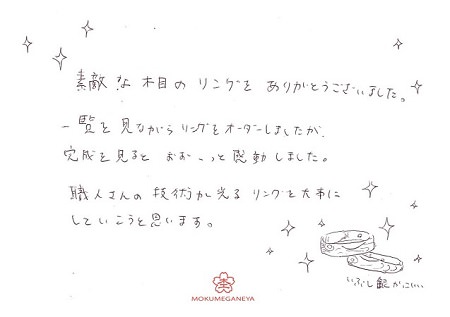 素敵な木目のリングを ありがとうございました。
一覧を見ながらリングをオーダーしましたが、
完成を見ると おお…っと感動しました。
職人さんの技術が光るリングを大事に
していこうと思います。
いぶし銀がかっこいい
MOKUMEGANEYA